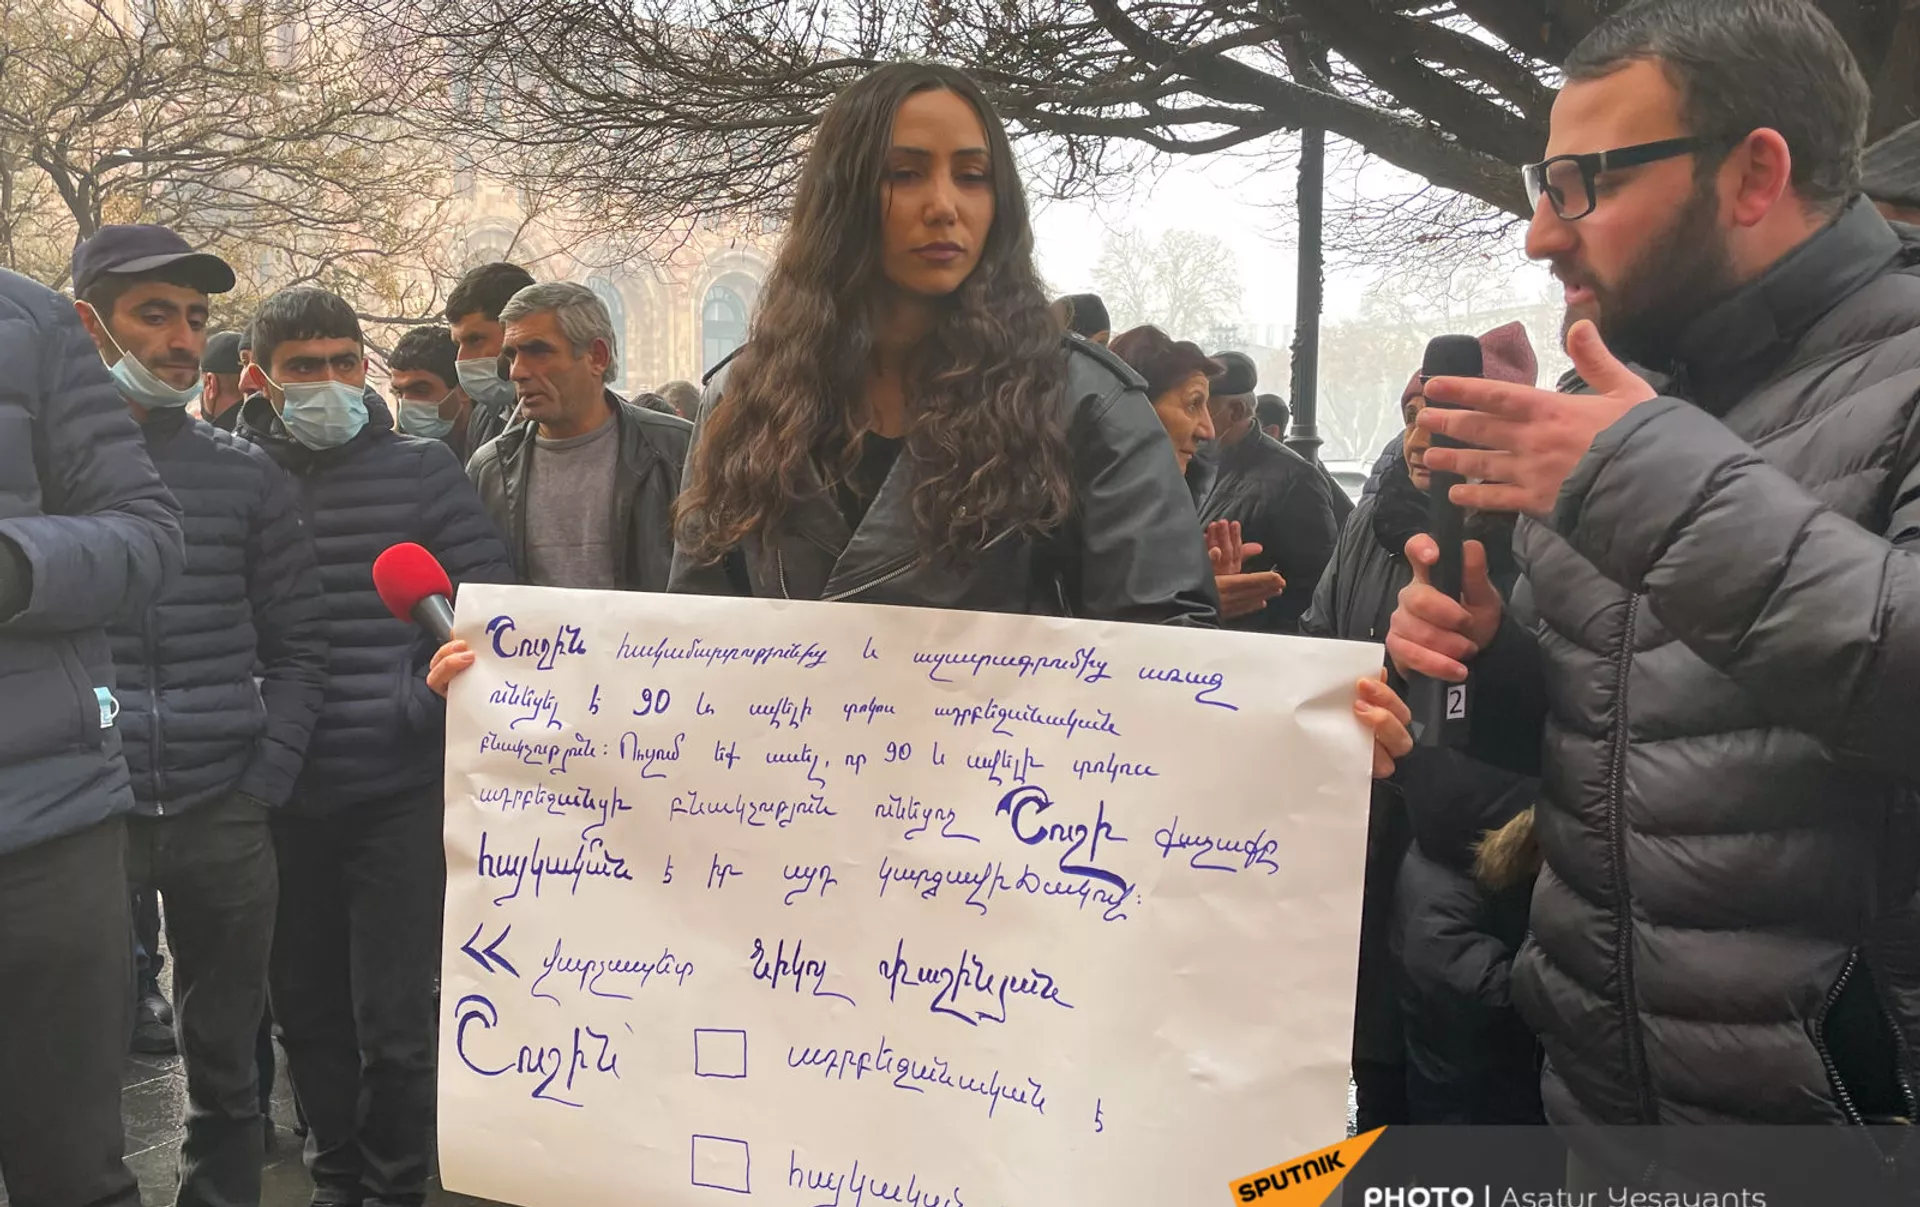 Շուշին հակամարտությունից և ազատագրումից առաջ
ունեցել է 90 և ավելի տոկոս ադրբեջանական
բնակչություն: Ուզում եք ասել, որ 90 և ավելի տոկոս
ադրբեջանցի բնակչություն ունեցող Շուշի քաղաքը
հայկական է իր այդ կարգավիճակով:
« վարչապետ Նիկոլ Փաշինյան
Շուշին՝ ադրբեջանական է
հայկական
2
SPUTNIK
PHOTO | Asatur Yesayants